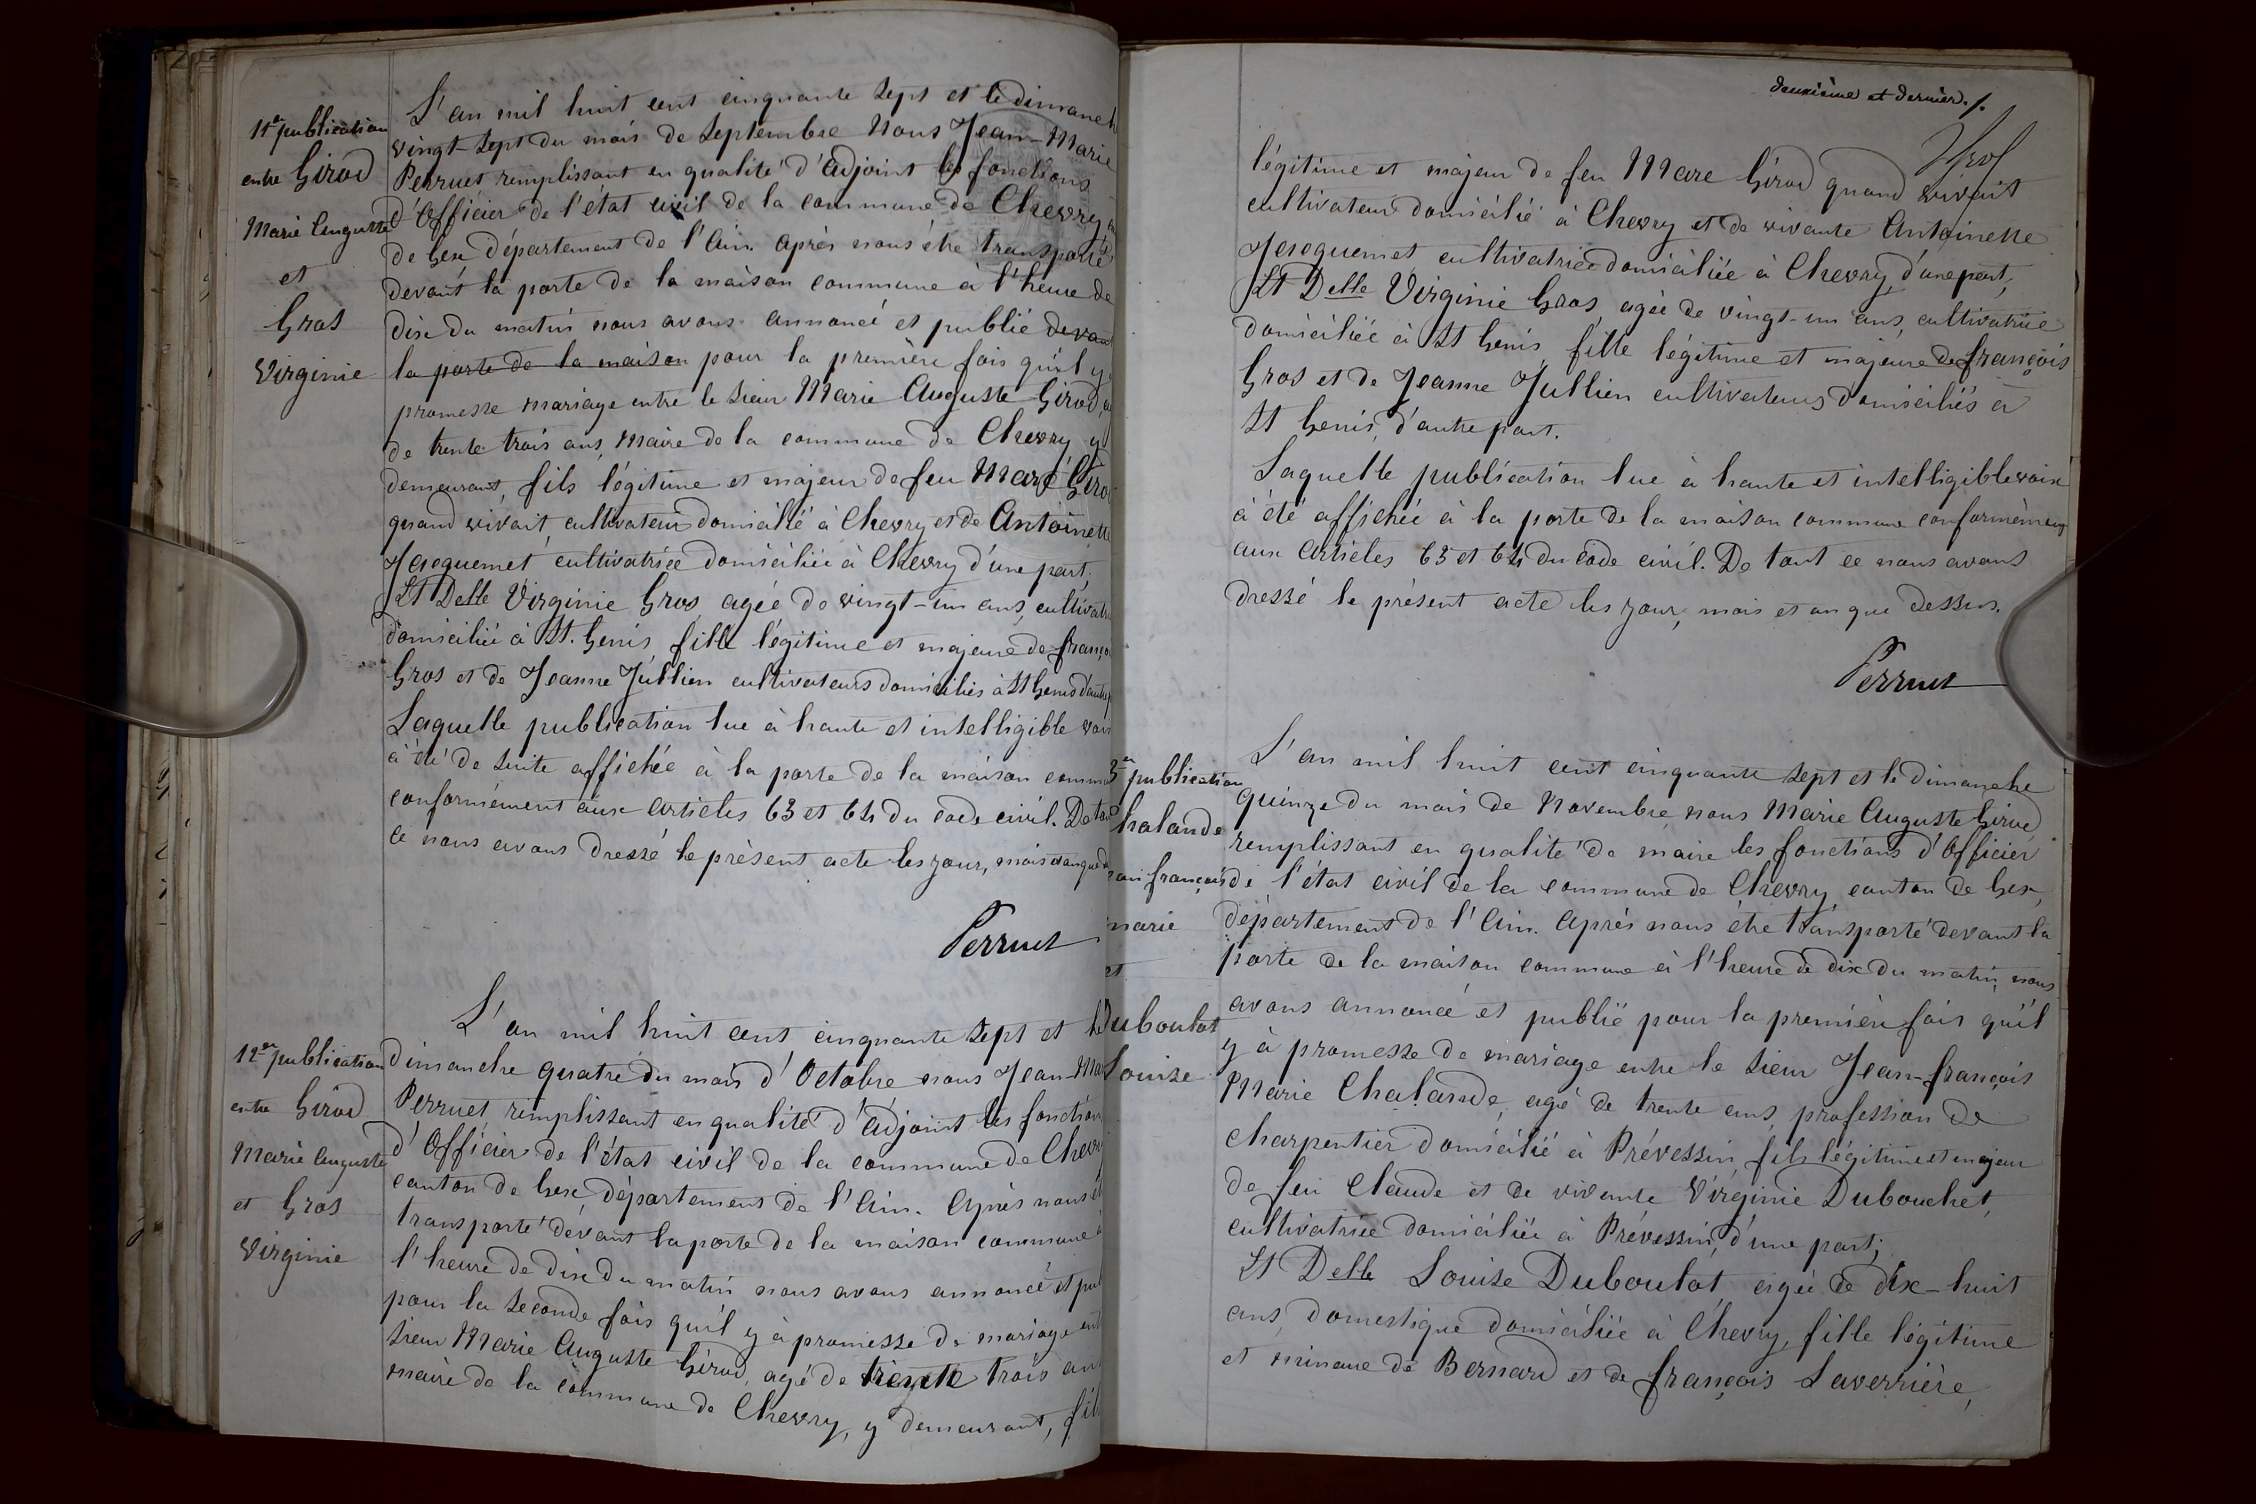 11e publication
entre Girod
Marie Auguste
et
Gros
Virginie
L'an mil huit cent cinquante sept et le dimanch
vingt-sept du mois de Septembre Nous Jean-Marie
Perruet remplissant en qualité d'adjoint les fonctions
d'Officier de l'état civil de la commune de Chevry
de Gex département de l'Ain. Après nous être transporté
devant la porte de la maison commune à l'heure de
dix du matin nous avons annoncé et publié devant
la porte de la maison pour la première fois qu'il y
promesse mariage entre le sieur Marie Auguste Girod,
de trente trois ans, Maire de la commune de Chevry y
demeurant, fils légitime et majeur de feu Marc Giro
quand vivait, cultivateur domicilié à Chevry et de Antoinette
Jacquemet, cultivatrice domiciliée à Chevry d'une part,
Et Delle Virginie Gros agée de vingt-un ans, cultivatr
domiciliée à St. Genis, fille légitime et majeure de franço
Gros et de Jeanne Jullien cultivateurs domiciliés à St Genis d'autre p
Laquelle publication lue à haute et intelligible voix
à été de suite affichée à la porte de la maison commu
conformément aux articles 63 et 64 du code civil. De tout
ce nous avons dressé le présent acte les jour, mois et an que d
Perruet
12e publication
entre Girod
Marie Auguste
et Gros
Virginie
L'an mil huit cent cinquante sept et le
dimanche quatre du mois d'Octobre nous Jean-Mar
Perruet remplissant en qualité d'adjoint les fonction
d'Officier de l'état civil de la commune de Chevr
canton de Gex département de l'Ain. Après nous êt
transporté devant la porte de la maison commune à
l'heure de dix du matin nous avons annoncé et pub
pour la seconde fois qu'il y à promesse de mariage ent
sieur Marie Auguste Girod, agé de trente trois an
maire de la commune de Chevry, y demeurant, fil
deuxième et dernier./.
légitime et majeur de feu Marc Girod quand vivait
cultivateur domicilié à Chevry et de vivante Antoinette
Jacquemet cultivatrice domiciliée à Chevry, d'une part;
Et Delle Virginie Gros, agée de vingt-un ans, cultivatrice
domiciliée à St Genis, fille légitime et majeure de françois
Gros et de Jeanne Jullien cultivateurs domiciliés à
St Genis, d'autre part.
Laquelle publication lue à haute et intelligible voix
à été affichée à la porte de la maison commune conformément
aux articles 63 et 64 du code civil. De tout ce nous avons
dressé le présent acte les jour, mois et an que dessus.
Perruet
3e publication
halande
ean françois
marie
et
Duboulot
Louise
L'an mil huit cent cinquante sept et le dimanche
quinze du mois de Novembre, nous Marie Auguste Girod,
remplissant en qualité de maire les fonctions d'Officier
de l'état civil de la commune de Chevry, canton de Gex,
département de l'Ain. Après nous être transporté devant la
porte de la maison commune à l'heure de dix du matin, nous
avons annoncé et publié pour la première fois qu'il
y à promesse de mariage entre le sieur Jean-françois
Marie Chalande, agé de trente ans, profession de
charpentier domicilié à Prévessin, fils légitime et majeur
de feu Claude et de vivante Virginie Dubouchet,
cultivatrice domiciliée à Prévessin, d'une part;
Et Delle Louise Duboulot, agée de dix-huit
ans, domestique domiciliée à Chevry, fille légitime
et mineure de Bernard et de françois Laverrière,